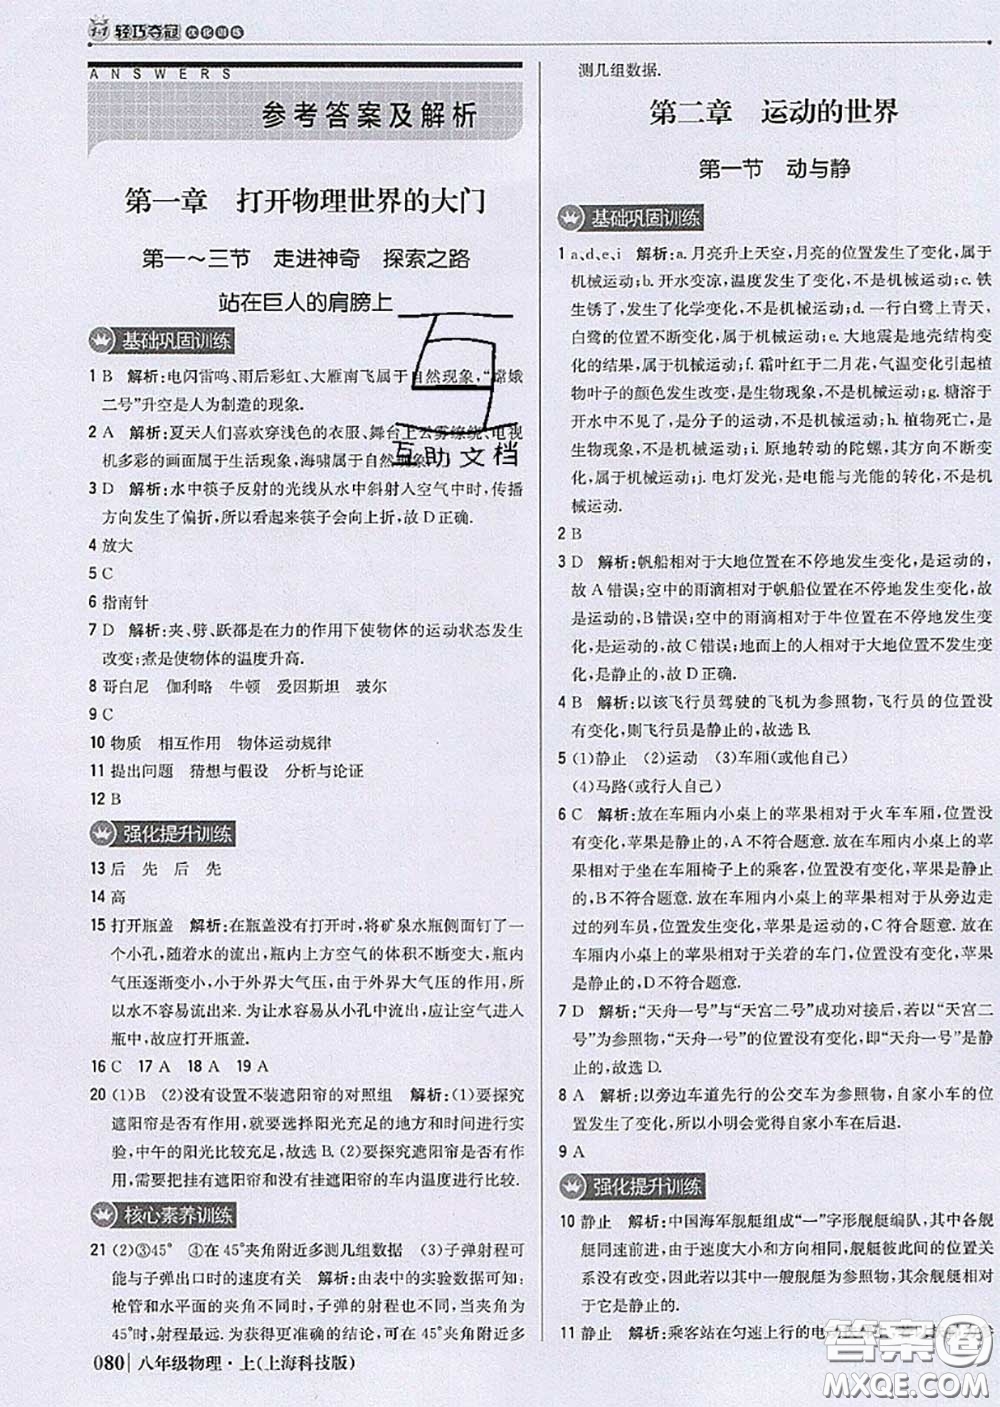 1+1 轻巧夺冠 优化训练
ANSWERS
参考答案及解析
第一章 打开物理世界的大门
第一～三节 走进神奇 探索之路
站在巨人的肩膀上
基础巩固训练
1 B 解析:电闪雷鸣、雨后彩虹、大雁南飞属于自然现象,“嫦娥
二号”升空是人为制造的现象.
2 A 解析:夏天人们喜欢穿浅色的衣服、舞台上云雾缭绕、电视
机多彩的画面属于生活现象,海啸属于自然现象.
3 D 解析:水中筷子反射的光线从水中斜射入空气中时,传播
方向发生了偏折,所以看起来筷子会向上折,故D正确.
4 放大
5 C
6 指南针
7 D 解析:夹、劈、跃都是在力的作用下使物体的运动状态发生
改变;煮是使物体的温度升高.
8 哥白尼 伽利略 牛顿 爱因斯坦 玻尔
9 C
10 物质 相互作用 物体运动规律
11 提出问题 猜想与假设 分析与论证
12 B
强化提升训练
13 后 先 后 先
14 高
15 打开瓶盖 解析:在瓶盖没有打开时,将矿泉水瓶侧面钉了一
个小孔,随着水的流出,瓶内上方空气的体积不断变大,瓶内
气体压强逐渐变小,小于外界大气压,由于外界大气压的作用,所
以水不容易流出来.要想让水容易从小孔中流出,应让空气进入
瓶中,故应打开瓶盖.
16 C 17 A 18 A 19 A
20 (1)B (2)没有设置不装遮阳帘的对照组 解析:(1)要探究
遮阳帘是否有作用,就要选择阳光充足的地方和时间进行实
验,中午的阳光比较充足,故选B.(2)要探究遮阳帘是否有作
用,需要把挂有遮阳帘和没有挂遮阳帘的车内温度进行对比.
核心素养训练
21 (2)③45° ④在45°夹角附近多测几组数据 (3)子弹射程可
能与子弹出口时的速度有关 解析:由表中的实验数据可知:
枪管和水平面的夹角不同时,子弹的射程也不同,当夹角为
45°时,射程最远.为了得到更准确的结论,可以在45°夹角附近多
080 八年级物理·上(上海科技版)
测几组数据.
第二章 运动的世界
第一节 动与静
基础巩固训练
1 a、d、e、i 解析:a.月亮升上天空,月亮的位置发生了变化,属于
机械运动;b.开水变凉,温度发生了变化,不是机械运动;c.铁
生锈了,发生了化学变化,不是机械运动;d.一行白鹭上青天,
白鹭的位置不断变化,属于机械运动;e.大地震是地壳结构变
化的结果,属于机械运动;f.霜叶红于二月花,气温变化引起植
物叶子的颜色发生改变,是生物现象,不是机械运动;g.糖溶于
开水中不见了,是分子的运动,不是机械运动;h.植物死亡,是
生物现象,不是机械运动;i.原地转动的陀螺,其位置发生了变
化,属于机械运动;j.电灯发光,是电能与光能的转化,不是机
械运动.
2 B
3 D 解析:帆船相对于大地位置在不停地发生变化,是运动的,
故A错误;空中的雨滴相对于帆船位置在不停地发生变化,是
运动的,故B错误;空中的雨滴相对于牛位置在不停地发生变
化,是运动的,故C错误;地面上的人相对于大地位置没有变化,
是静止的,故D正确.
4 B 解析:以该飞行员驾驶的飞机为参照物,飞行员的位置没
有变化,则飞行员是静止的,故选B.
5 (1)静止 (2)运动 (3)车厢(或他自己)
(4)马路(或行人自己)
6 C 解析:放在车厢内小桌上的苹果相对于火车车厢,位置没
有变化,苹果是静止的,A不符合题意.放在车厢内小桌上的苹
果相对于坐在车厢椅子上的乘客,位置没有变化,苹果是静止
的,B不符合题意.放在车厢内小桌上的苹果相对于从旁边走
过的列车员,位置发生了变化,苹果是运动的,C符合题意.放在
车厢内小桌上的苹果相对于关着的车门,位置没有变化,苹果
是静止的,D不符合题意.
7 D 解析:“天舟一号”与“天宫二号”成功对接后,若以“天宫二
号”为参照物,“天舟一号”的位置没有发生变化,即“天舟一号”是静
止的,故选D.
8 A 解析:以旁边车道先行的公交车为参照物,自家小车的位
置发生了变化,所以小明会觉得自家小车在后退.
9 A
强化提升训练
10 静止 解析:中国海军舰艇组成“一”字形舰艇编队,其中各舰
艇同速前进,由于速度大小和方向相同,舰艇彼此间的位置关
系没有改变,因此以其中一艘舰艇为参照物,其余舰艇相对
于它是静止的.
11 静止 解析:乘客站在匀速上行的电
互助文档
答案圈
MXQE.COM